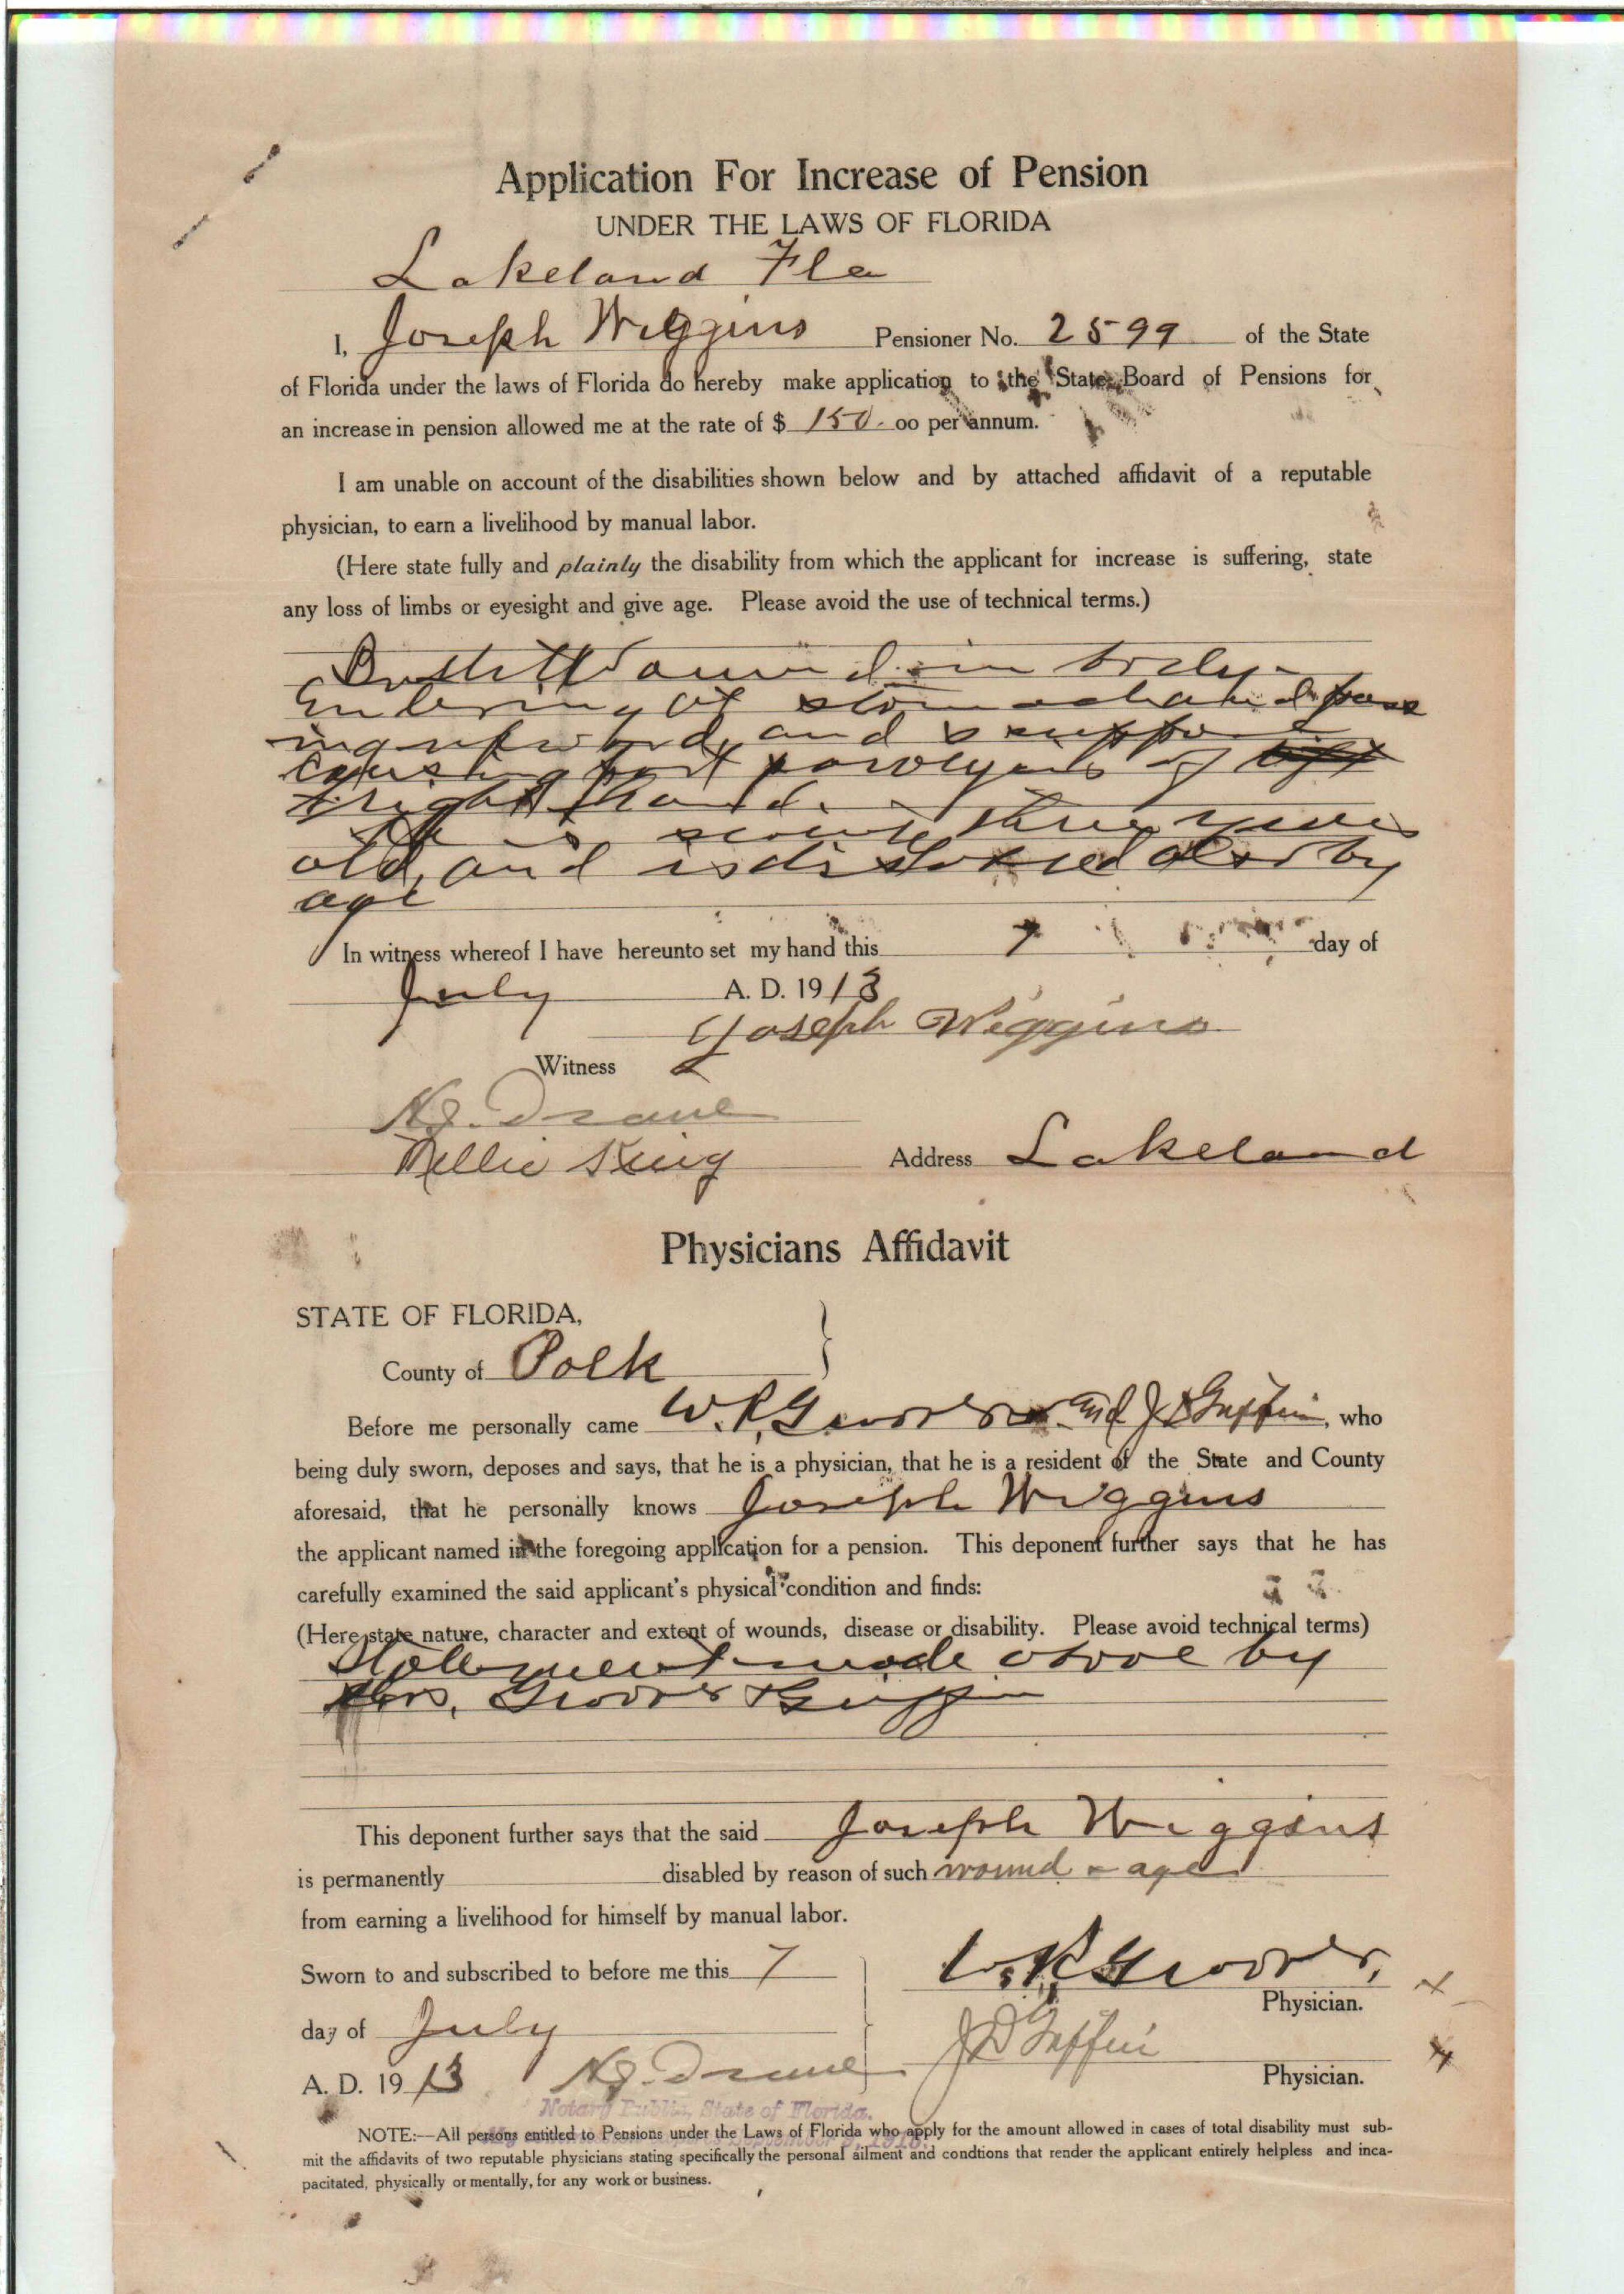 Application For Increase of Pension
UNDER THE LAWS OF FLORIDA
Lakeland Fla
I, Joseph Wiggins Pensioner No. 2599 of the State
of Florida under the laws of Florida do hereby make application to the State Board of Pensions for
an increase in pension allowed me at the rate of $ 150. 00 per annum.
I am unable on account of the disabilities shown below and by attached affidavit of a reputable
physician, to earn a livelihood by manual labor.
(Here state fully and plainly the disability from which the applicant for increase is suffering, state
any loss of limbs or eyesight and give age. Please avoid the use of technical terms.)
Bullet Wound in body
Entering at stomach and pass
ing upward, and
causing part paralysis of
right hand.
He is seventy three years
old, and is disabled also by
age
In witness whereof I have hereunto set my hand this 7 day of
July A. D. 1913
Joseph Wiggins
Witness
H.J. Drane
Nellie King Address Lakeland
Physicians Affidavit
STATE OF FLORIDA,
County of Polk
Before me personally came W. R. Groover and J D Griffin, who
being duly sworn, deposes and says, that he is a physician, that he is a resident of the State and County
aforesaid, that he personally knows Joseph Wiggins
the applicant named in the foregoing application for a pension. This deponent further says that he has
carefully examined the said applicant's physical condition and finds:
(Here state nature, character and extent of wounds, disease or disability. Please avoid technical terms)
Statement made above by
Drs. Groover & Griffin
This deponent further says that the said Joseph Wiggins
is permanently disabled by reason of such wound & age
from earning a livelihood for himself by manual labor.
Sworn to and subscribed to before me this 7
W. R. Groover,
Physician.
day of July
J D Griffin
A. D. 1913 H.J. Drane
Physician.
Notary Public, State of Florida.
NOTE:—All persons entitled to Pensions under the Laws of Florida who apply for the amount allowed in cases of total disability must sub-
mit the affidavits of two reputable physicians stating specifically the personal ailment and condtions that render the applicant entirely helpless and inca-
pacitated, physically or mentally, for any work or business.